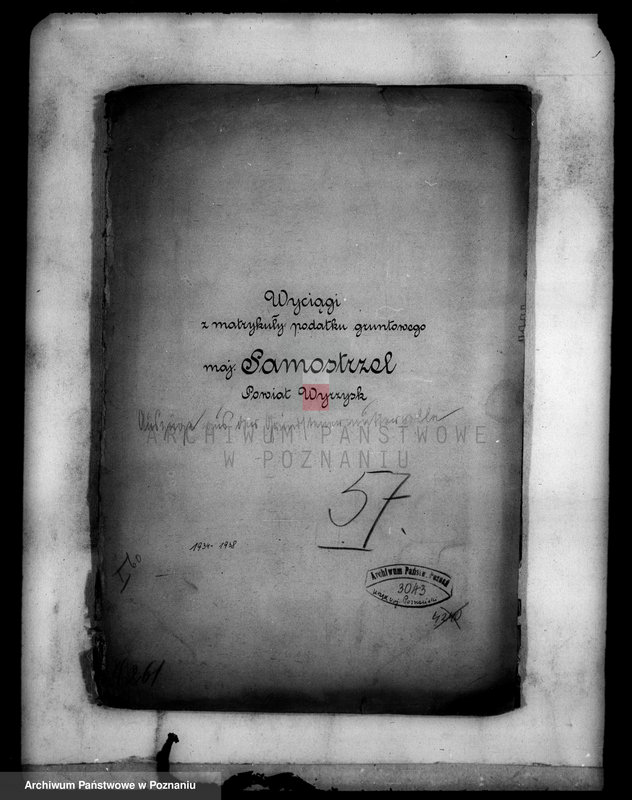 Wyciągi
z matrykuły podatku gruntowego
maj. Samostrzel
Powiat Wyrzysk
Auszüge aus der Grundsteuermutterrolle
ARCHIWUM PAŃSTWOWE
W POZNANIU
57.
1931-1938
I 60
Archiwum Państw. Poznań
3043
Urząd Woj. Poznański
4240
261
Archiwum Państwowe w Poznaniu